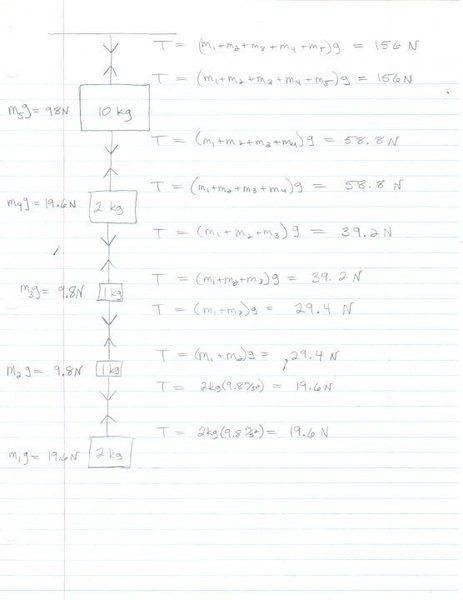 T = (m1+m2+m3+m4+m5)g = 156 N
T = (m1+m2+m3+m4+m5)g = 156N
m5g = 98N
10 kg
T = (m1+m2+m3+m4)g = 58.8 N
T = (m1+m2+m3+m4)g = 58.8 N
m4g = 19.6N
2 kg
T = (m1+m2+m3)g = 39.2N
T = (m1+m2+m3)g = 39.2 N
m3g = 9.8N
1kg
T = (m1+m2)g = 29.4 N
T = (m1+m2)g = 29.4 N
m2g = 9.8N
1kg
T = 2kg(9.8 m/s²) = 19.6N
T = 2kg(9.8 m/s²) = 19.6 N
m1g = 19.6N
2 kg